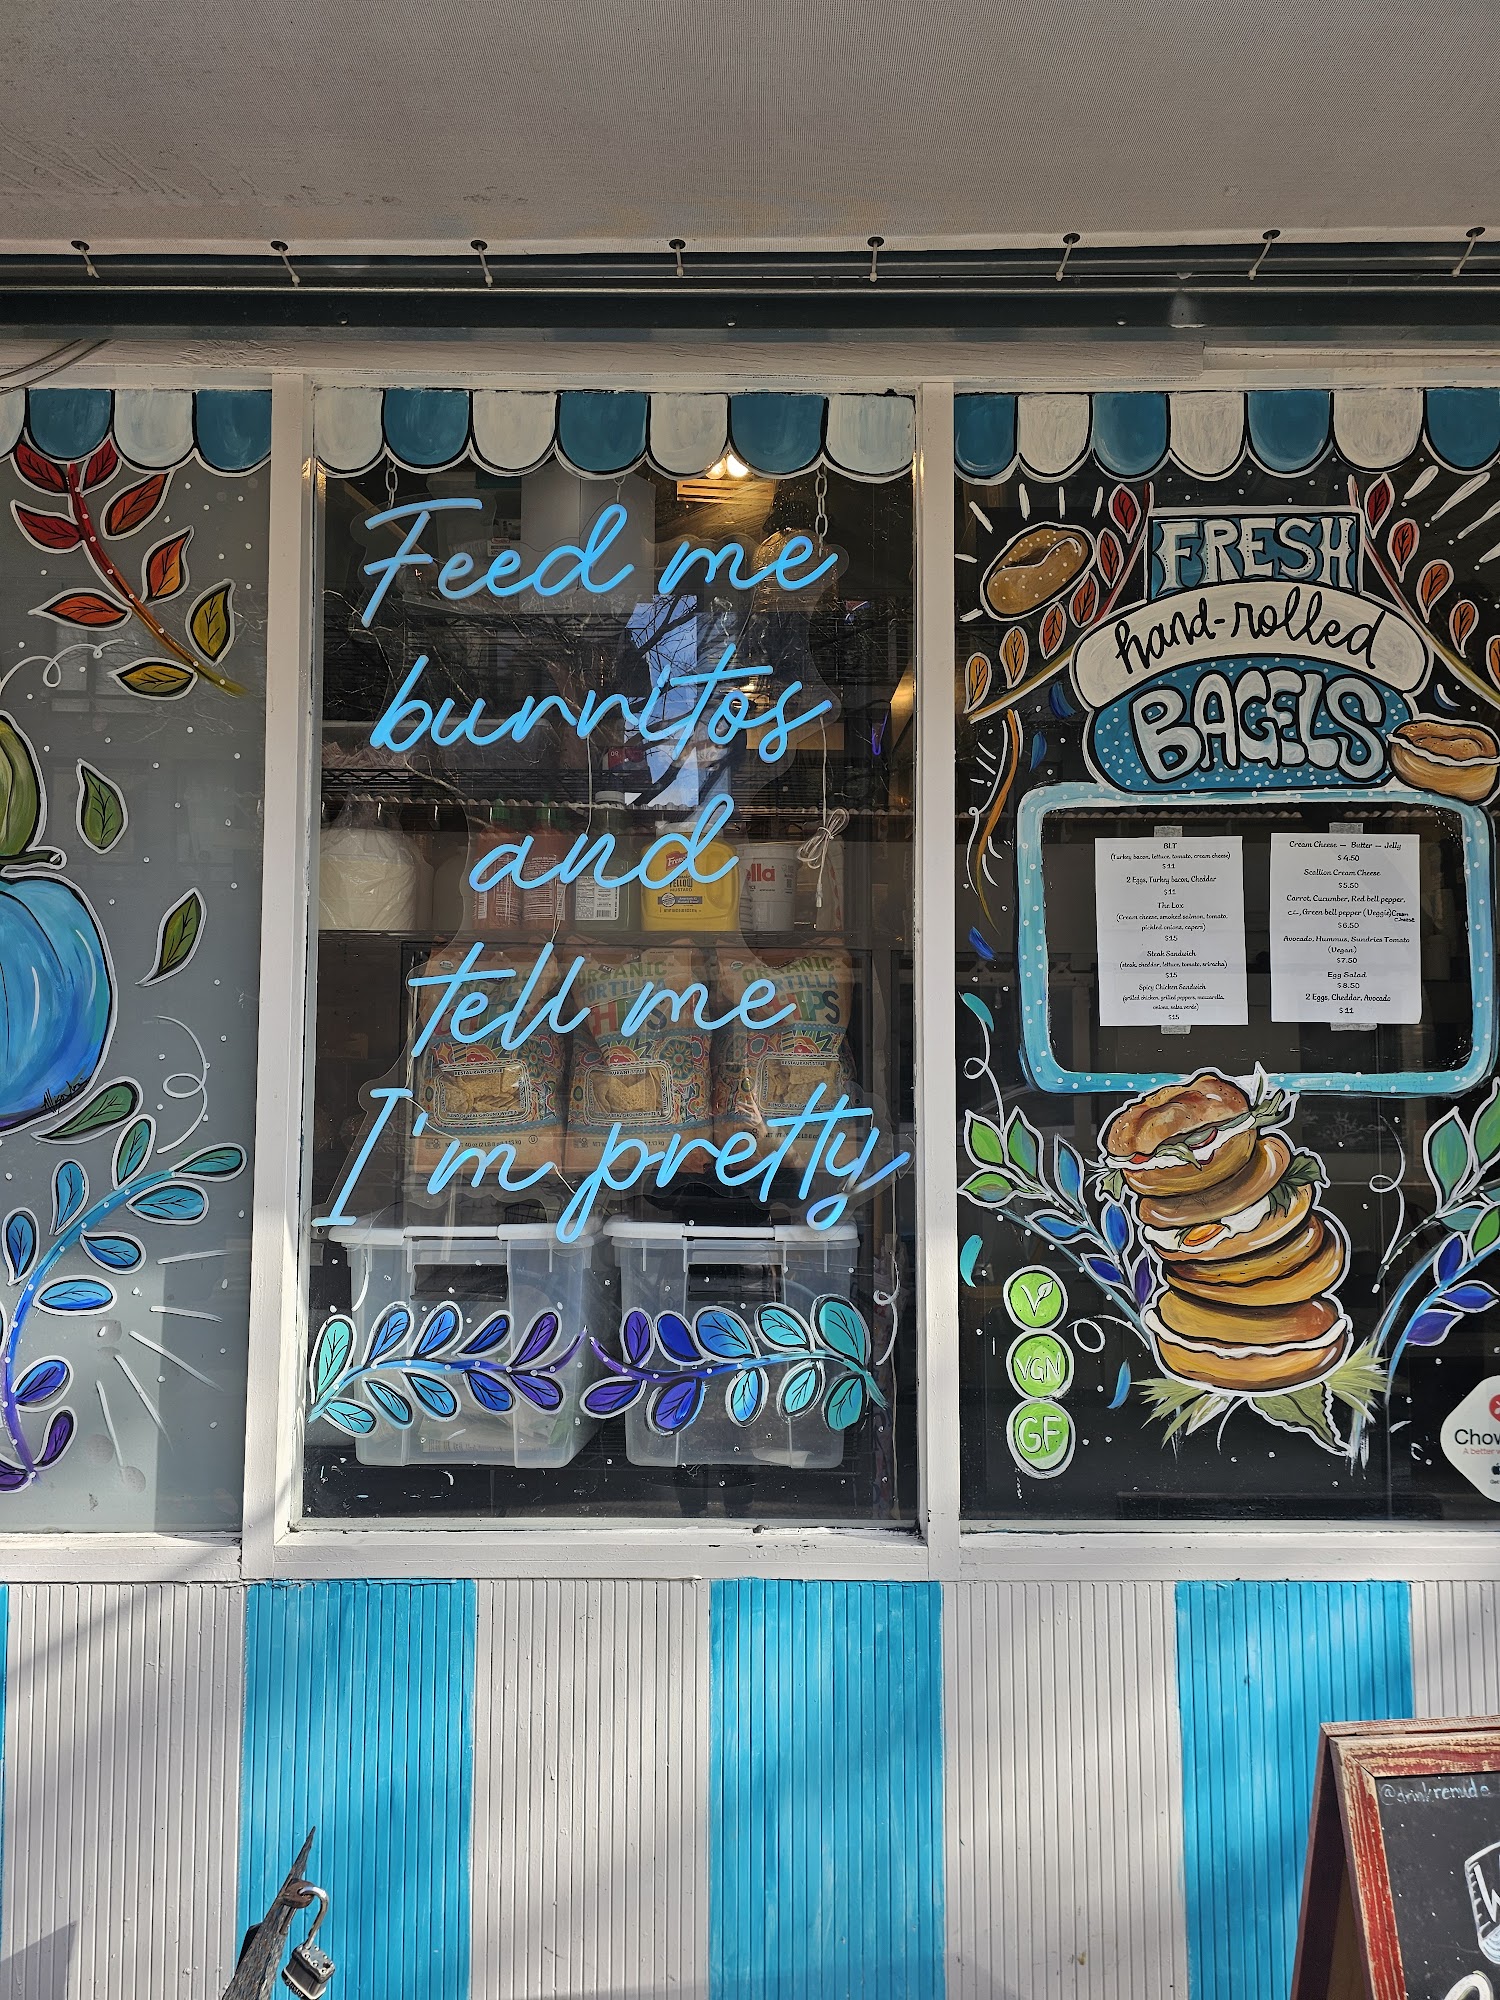 Feed me
burritos
and
tell me
I'm pretty
FRESH
hand-rolled
BAGELS
BLT
(Turkey bacon, lettuce, tomato, cream cheese)
$11
2 Eggs, Turkey bacon, Cheddar
$11
The Lox
(Cream cheese, smoked salmon, tomato,
pickled onions, capers)
$15
Steak Sandwich
(steak, cheddar, lettuce, tomato, sriracha)
$15
Spicy Chicken Sandwich
(grilled chicken, grilled peppers, mozzarella,
onions, salsa verde)
$15
Cream Cheese — Butter — Jelly
$4.50
Scallion Cream Cheese
$5.50
Carrot, Cucumber, Red bell pepper,
Green bell pepper (Veggie) Cream Cheese
$6.50
Avocado, Hummus, Sundries Tomato
(Vegan)
$7.50
Egg Salad
$8.50
2 Eggs, Cheddar, Avocado
$11
V
VGN
GF
Chow
A better
YELLOW
MUSTARD
ella
ORGANIC
TORTILLA
CHIPS
RESTAURANT STYLE
@drinkrenude